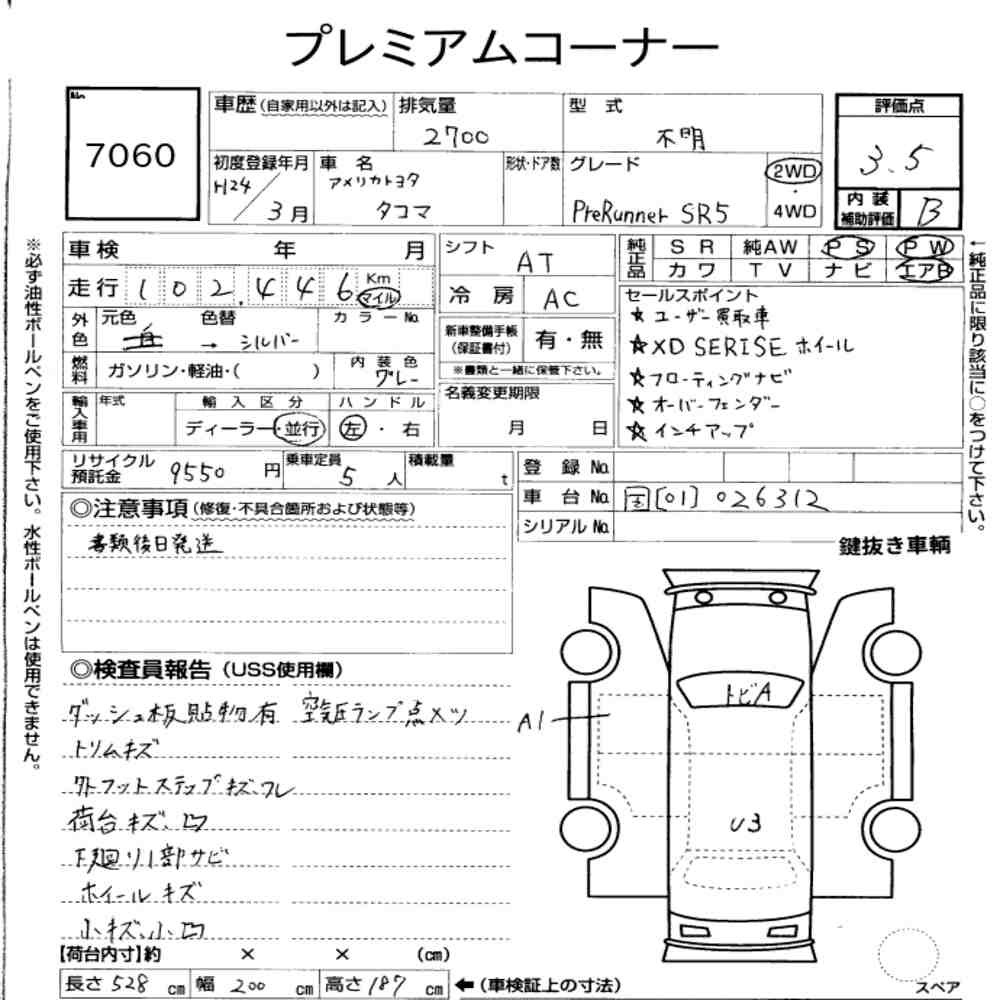 プレミアムコーナー
No.
7060
車歴 (自家用以外は記入)
排気量
2700
型式
不明
評価点
3.5
初度登録年月
H24
3月
車名
アメリカトヨタ
タコマ
形状・ドア数
グレード
PreRunner SR5
2WD
・
4WD
内装
補助評価
B
車検 年 月
走行 102,446 Km
マイル
外色
元色 色替 カラーNo.
→ シルバー
燃料
ガソリン・軽油・( )
内装色
グレー
輸入車用
年式
輸入区分
ディーラー・並行
ハンドル
左・右
シフト
AT
冷房
AC
新車整備手帳
(保証書付)
有・無
※書類と一緒に保管下さい。
名義変更期限
月 日
純正品
SR 純AW PS PW
カワ TV ナビ エアB
セールスポイント
★ ユーザー買取車
★ XD SERISE ホイール
★ フローティングナビ
★ オーバーフェンダー
★ インチアップ
リサイクル
預託金
9550 円
乗車定員
5 人
積載量
t
登録No.
車台No. 国[01]026312
シリアルNo.
◎注意事項 (修復・不具合箇所および状態等)
書類後日発送
鍵抜き車輌
◎検査員報告 (USS使用欄)
ダッシュ板貼物有 空気圧ランプ点メツ
トリムキズ
外フットステップキズ、ワレ
荷台キズ、凹
下廻り1部サビ
ホイールキズ
小キズ、小凹
A1
トビA
U3
【荷台内寸】約 × × (cm)
長さ 528 cm 幅 200 cm 高さ 187 cm ←(車検証上の寸法)
スペア
※必ず油性ボールペンをご使用下さい。水性ボールペンは使用できません。
←純正品に限り該当に○をつけて下さい。